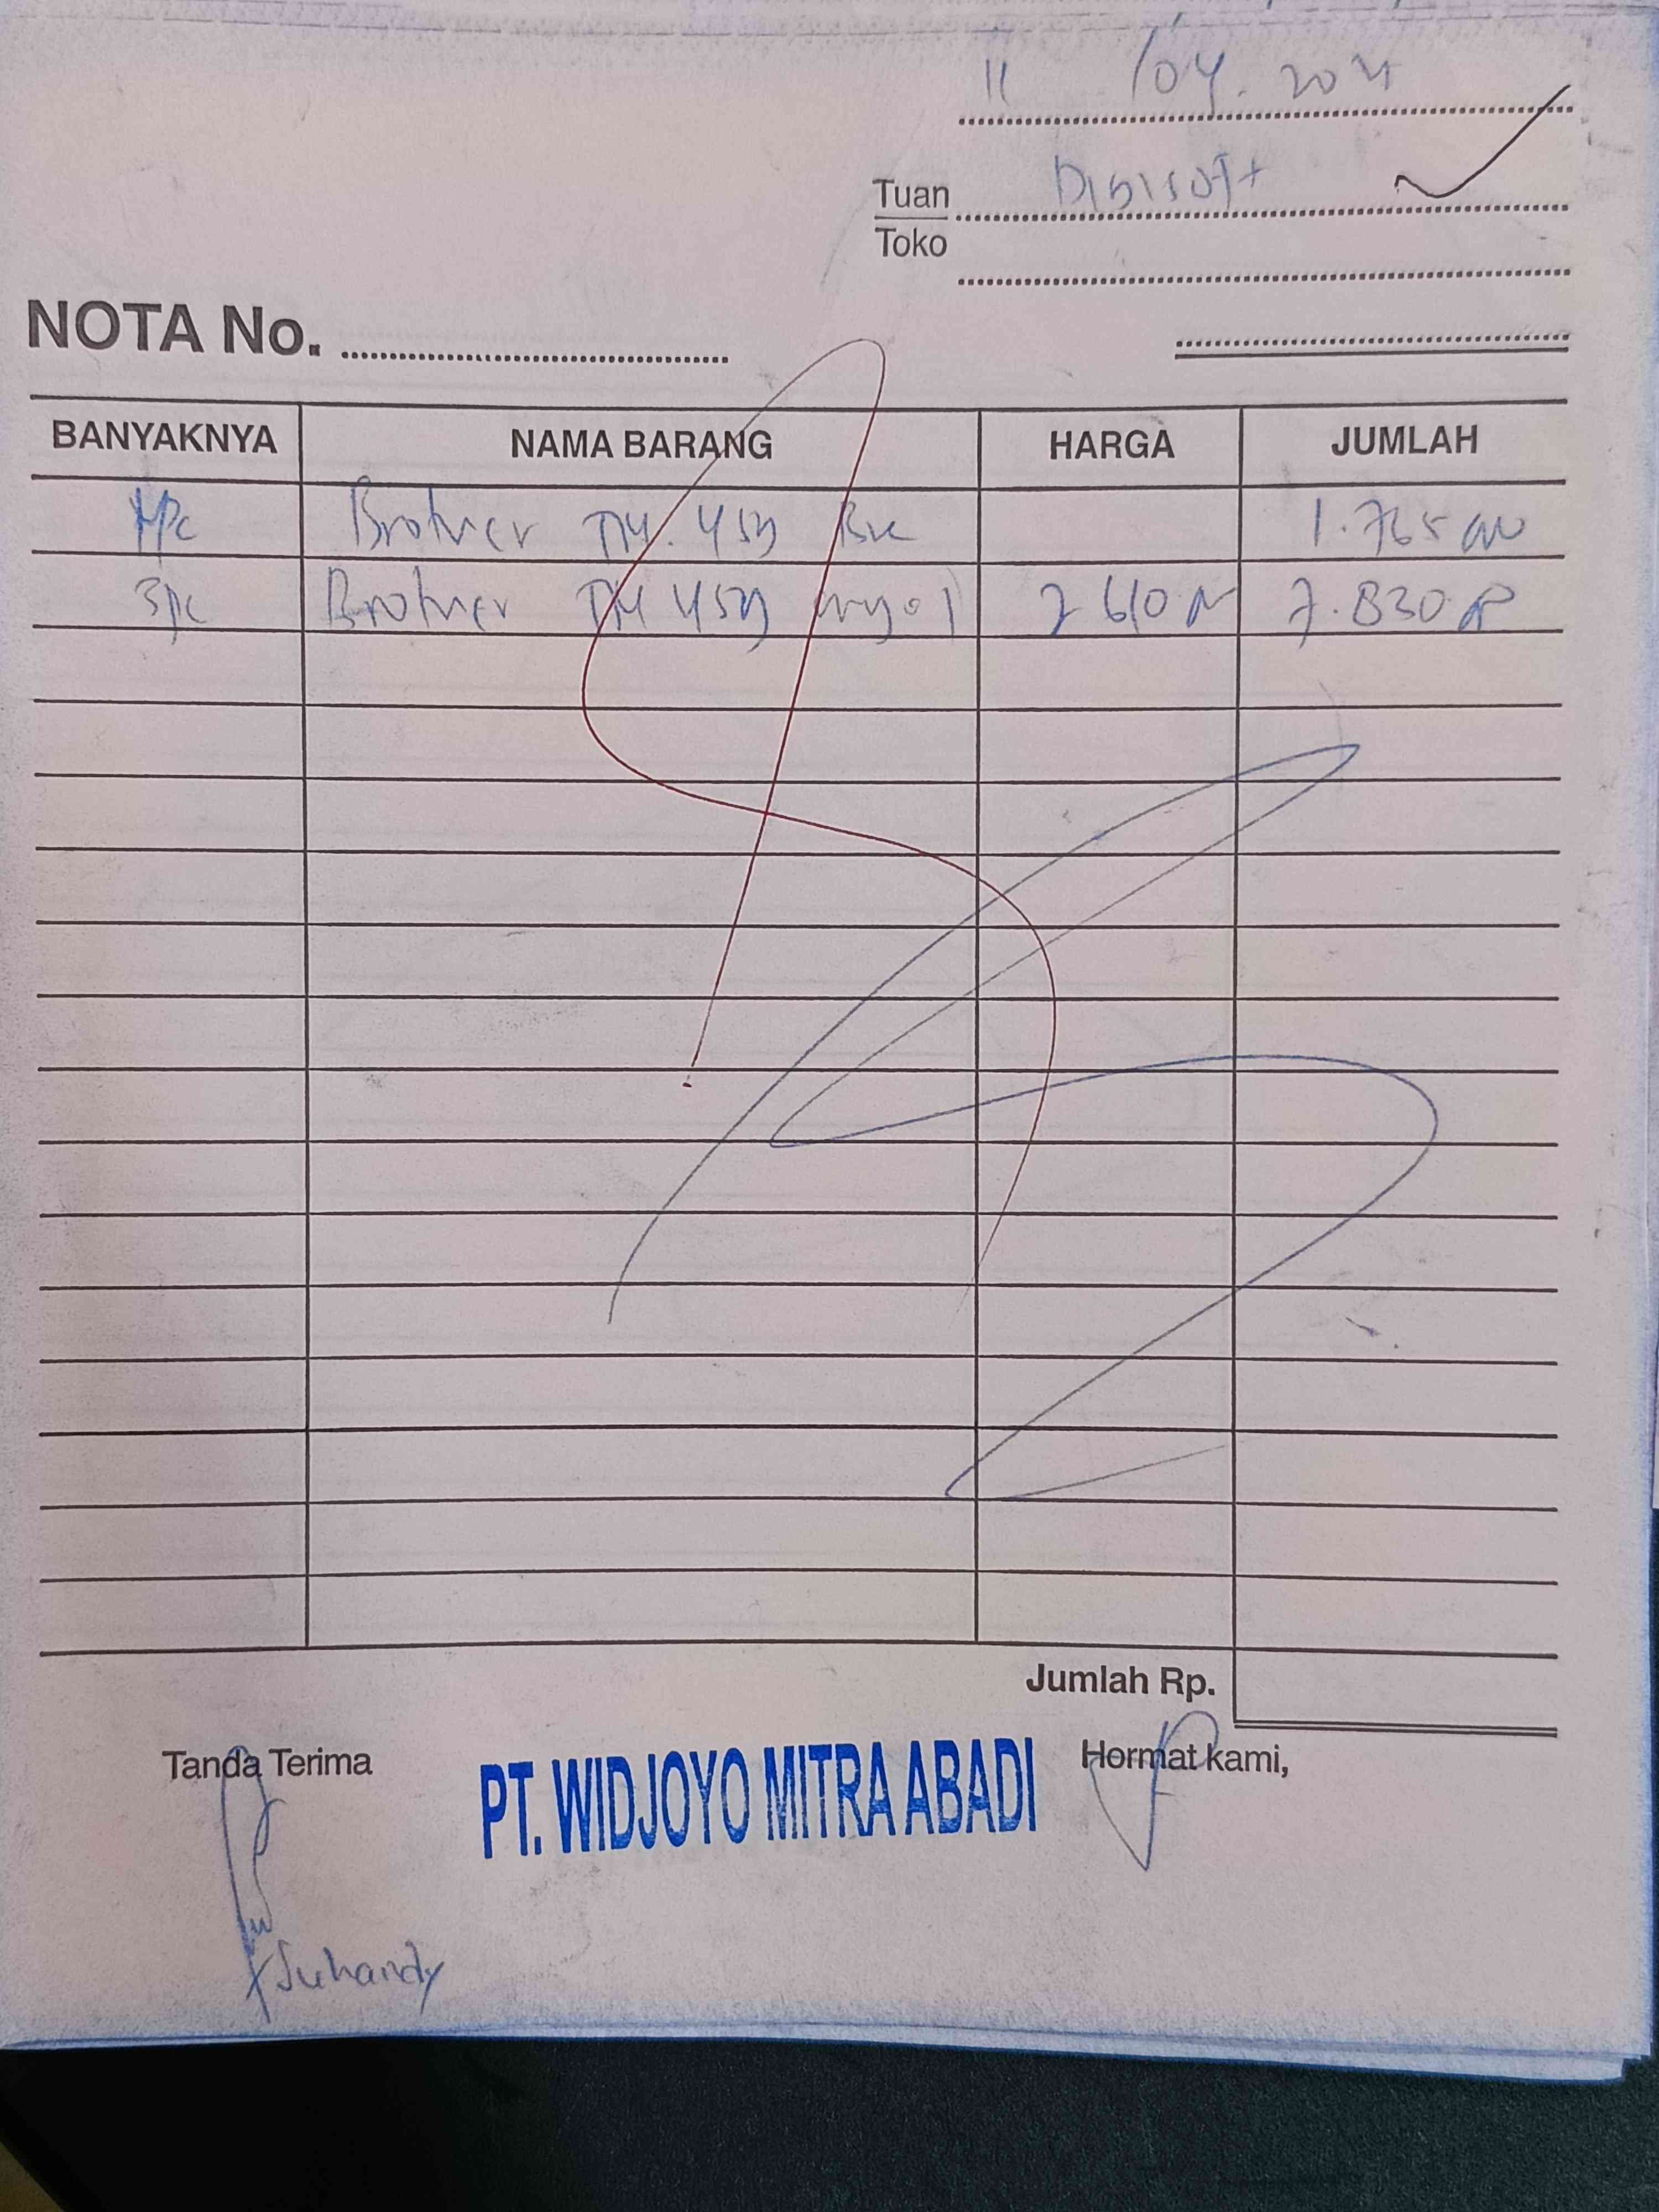 11 /04. 2024
Tuan Digisoft
Toko
NOTA No.
BANYAKNYA NAMA BARANG HARGA JUMLAH
1pc Brother TN. 459 BK 1.765
3pc Brother TN 459 2 610 7.830
Jumlah Rp.
Tanda Terima PT. WIDJOYO MITRA ABADI Hormat kami,
Suhandy